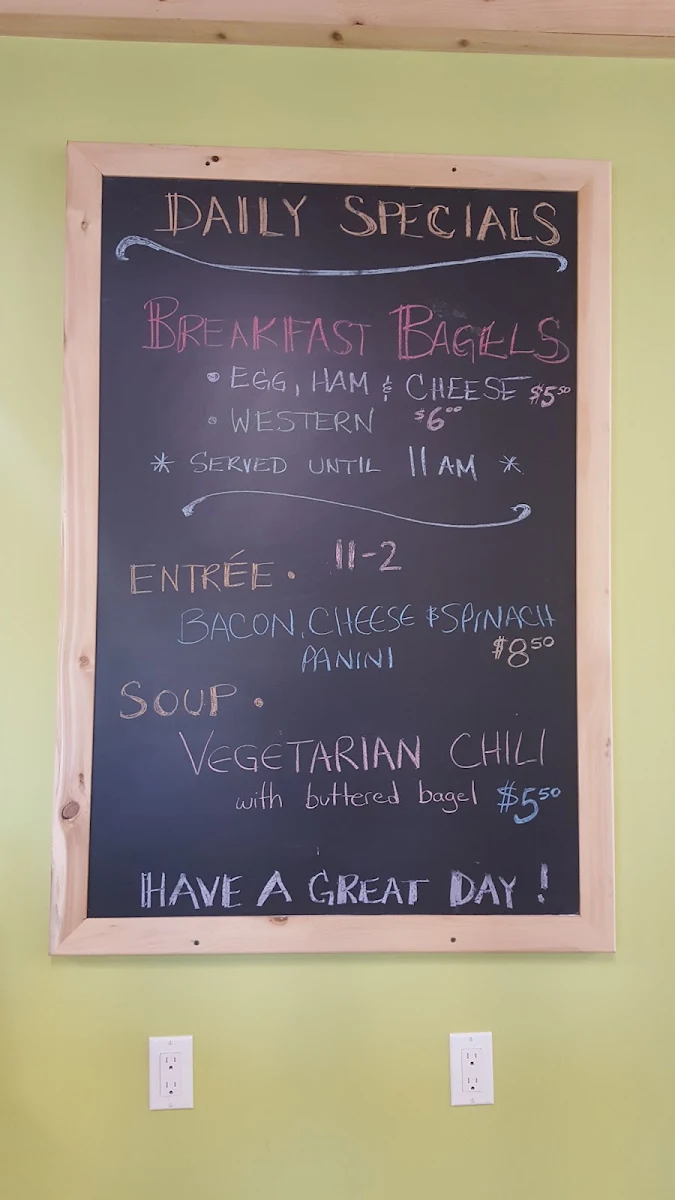 DAILY SPECIALS
BREAKFAST BAGELS
• EGG, HAM & CHEESE $5.50
• WESTERN $6.00
* SERVED UNTIL 11AM *
ENTRÉE • 11-2
BACON, CHEESE & SPINACH
PANINI $8.50
SOUP •
VEGETARIAN CHILI
with buttered bagel $5.50
HAVE A GREAT DAY!